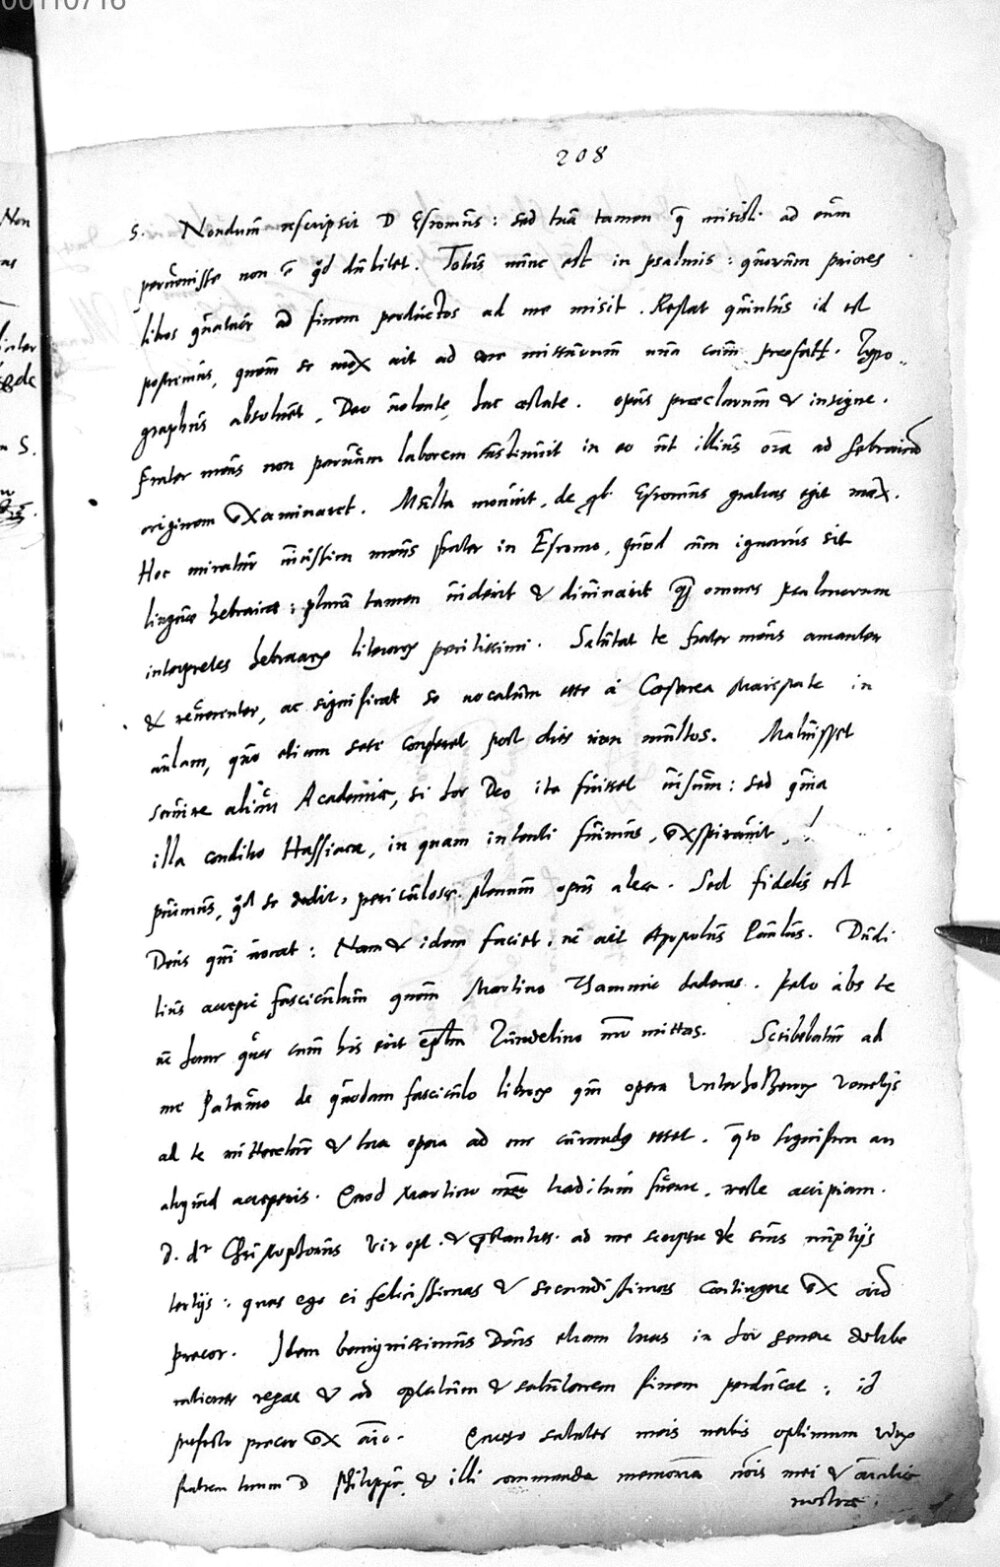 00110716
208
S. Nondum rescripsit D Esromus: sed tuas tamen q̃ misisti ad eum
pervenisse non ẽ qd dubitet. Totus nunc est in psalmis: quorum priores
libros quatuor ad finem perductos ad me misit. Restat quintus id est
postremus, quem se mox ait ad me missurum una cum prefat. Typo
graphus absolvet, Deo volente, hac æstate. opus præclarum & insigne.
Frater meus non parvum laborem sustinuit in eo ut illius oĩa ad hebraicã
originem examinaret. Multa monuit, de qb. Esromus gratias egit max.
Hoc miratur meus frater in Esromo, quod cum ignarus sit
linguæ hebraicæ: plura tamen viderit & divinarit q̃ omnes psalmorum
interpretes hebraarũ literarũ peritissimi. Salutat te frater meus amanter
& reverenter, ac significat se vocatum esse a Cæsarea Maiestate in
aulam, quo etiam sese conferet post dies non multos. Maluisset
servire alicui Academiæ, si hoc Deo ita fuisset visum: sed quia
illa conditio Hassiaca, in quam intenti fuimus, exspiravit,
primus, qd se dedit, periculosæ plenum opus aleæ. Sed fidelis est
Deus qui vocat: Nam & idem faciet, ut ait Apostolus Paulus. Dudi
tius accepi fasciculum quem Martino dederas. Peto abs te
ut cum his erit eptla Zundelino mittas. Scribebatur ad
me Patavio de quodam fasciculo librorũ qui opera Venetijs
ad te mitteretur & tua opera ad me curandus esset. q̃so significa an
aliquid acceperis. Quod Martino traditum fuerit, recte accipiam.
D. dr Christophorus vir opt. & ad me scripsit de suis nuptijs
tertijs: quas ego ei felicissimas & secundissimas contingere ex aĩo
precor. Idem benignissimus Deus etiam tuas in hoc genere delibe
rationes regat & ad optatum & salutarem finem perducat: id
profecto precor ex aĩo. Quæso salutes meis verbis optimum virũ
fratrem tuum D Philippũ, & illi commenda memoriam nõis mei &
nostræ.